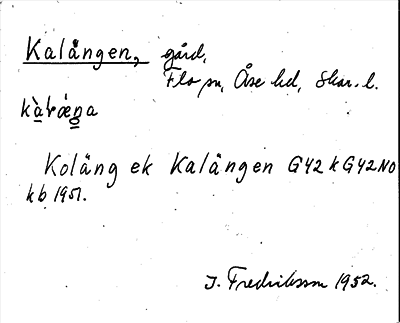 Kalången, gård,
Flo sn, Åse hd, Skar. l.
Koläng ek Kalängen G42 k G42NO
kb 1951.
I. Fredriksson 1952.